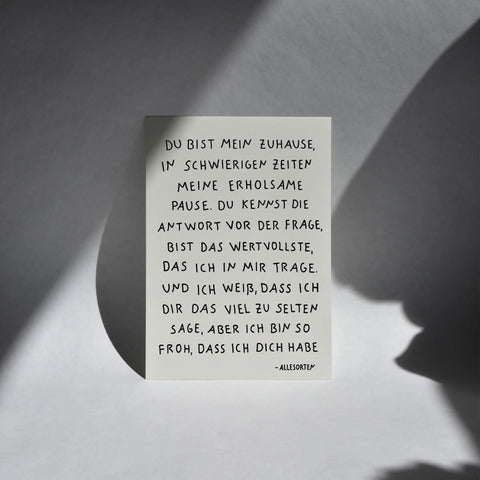 DU BIST MEIN ZUHAUSE,
IN SCHWIERIGEN ZEITEN
MEINE ERHOLSAME
PAUSE. DU KENNST DIE
ANTWORT VOR DER FRAGE,
BIST DAS WERTVOLLSTE,
DAS ICH IN MIR TRAGE.
UND ICH WEIß, DASS ICH
DIR DAS VIEL ZU SELTEN
SAGE, ABER ICH BIN SO
FROH, DASS ICH DICH HABE
- ALLESORTEN